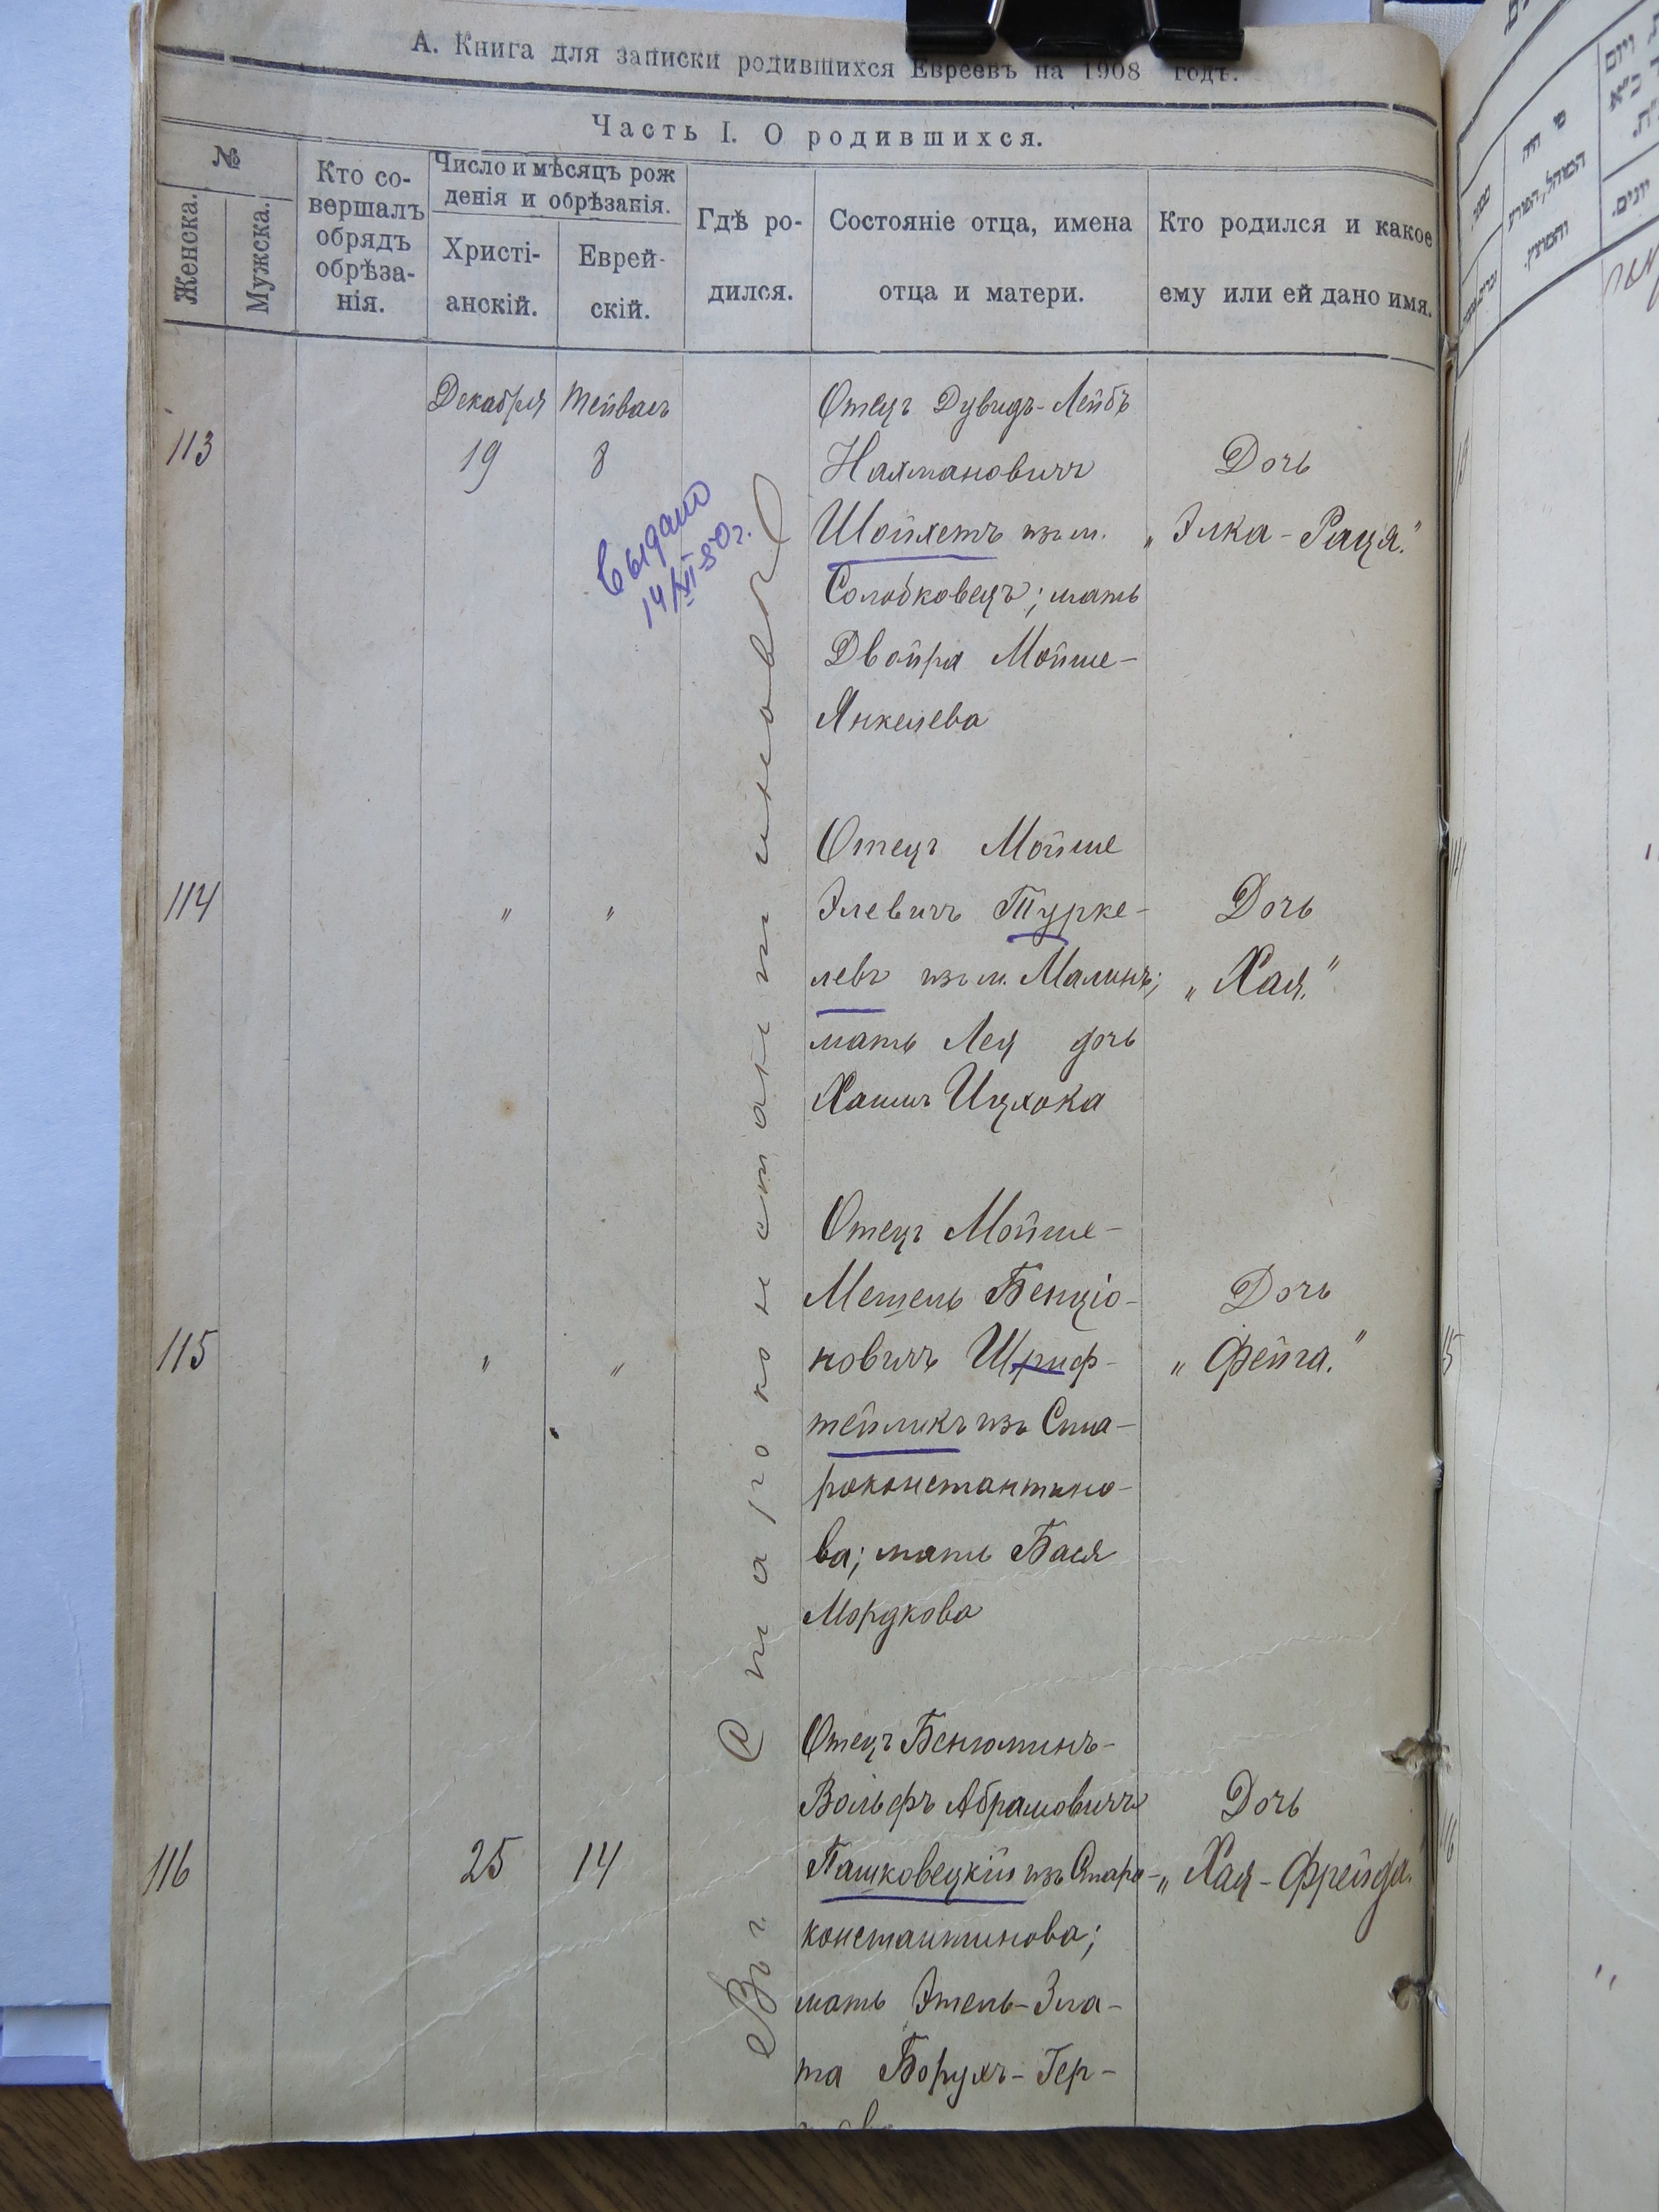 А. Книга для записки родившихся Евреевъ на 1908 годъ.
Часть I. О родившихся.
№
Женска.
Мужска.
Кто со-
вершалъ
обрядъ
обрѣза-
нія.
Число и мѣсяцъ рож
денія и обрѣзанія.
Христі-
анскій.
Еврей-
скій.
Гдѣ ро-
дился.
Состояніе отца, имена
отца и матери.
Кто родился и какое
ему или ей дано имя.
Въ г. Староконстантиновѣ
113
Декабря
19
Тейвасъ
8
Выдано
14/XII-50г.
Отецъ Дувидъ-Лейбъ
Нахмановичъ
Шойхетъ изъ м.
Солобковецъ; мать
Двойра Мойше-
Янкелева
Дочь
„Элка-Рация."
114
" "
Отецъ Мойше
Элевичъ Турке-
левъ изъ м. Малинъ;
мать Лея дочь
Хаимъ Ицхока
Дочь
„Хая."
115
" "
Отецъ Мойше-
Мешель Бенціо-
новичъ Шриф-
тейликъ изъ Ста-
роконстантино-
ва; мать Бася
Мордкова
Дочь
„Фейга."
116
25
14
Отецъ Беніоминъ-
Вольфъ Абрамовичъ
Пашковецкій изъ Старо-
константинова;
мать Этель-Зла-
та Борухъ-Гер-
Дочь
„Хая-Фрейда."